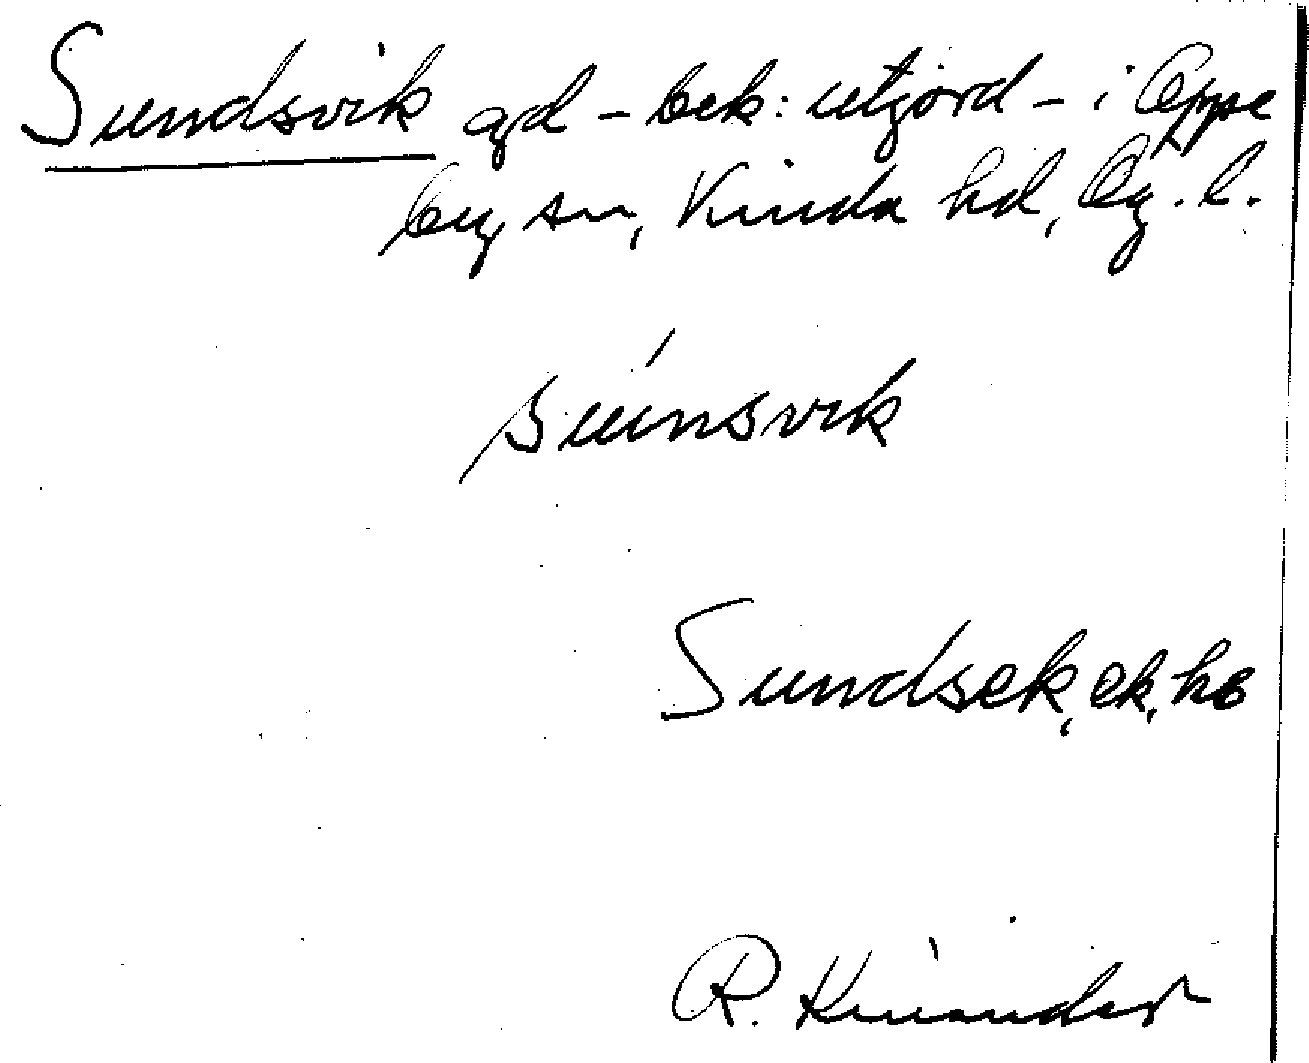 Sundsvik gd - bek: utjord - i Oppe
by sn, Kinda hd, Ög. l.
súnsvik
Sundsek, ek, hs
R. Kinander